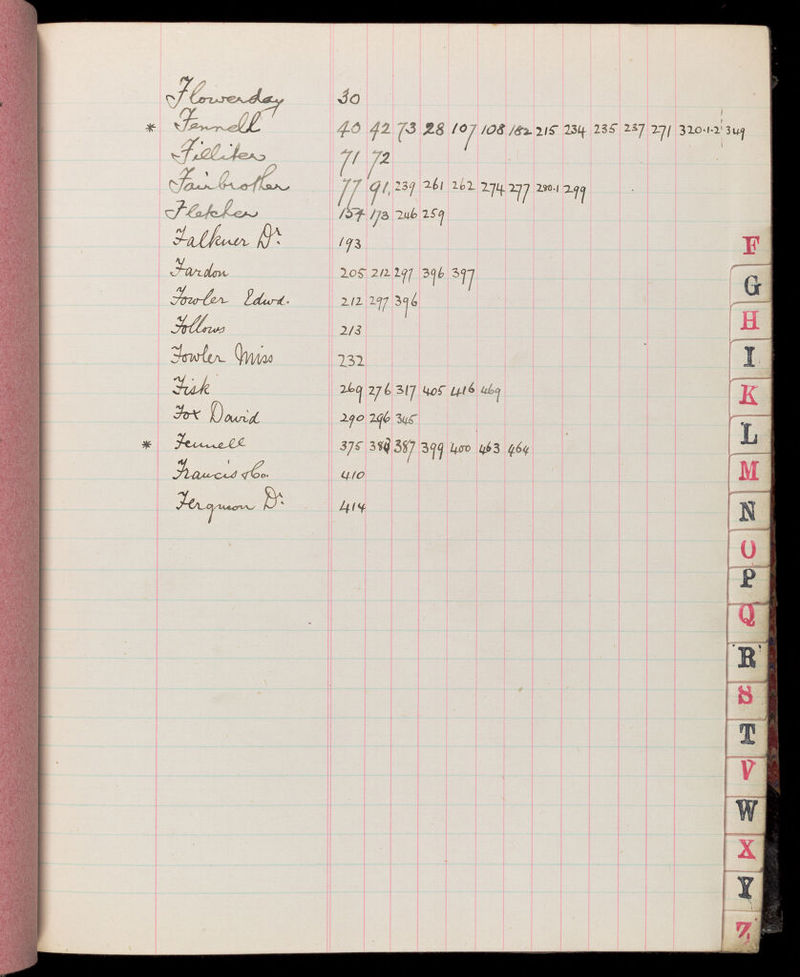 Flowerday 30
* Fennell 40 42 73 28 107 108 182 215 234 235 237 271 320-1-2 349
Filliter 71 72
Fairbrother 77 91, 239 261 262 274 277 280-1 299
Fletcher 154 173 246 259
Falkner Dr. 193
Fardon 205 212 297 396 397
Fowler Edwd. 212 297 396
Follows 213
Fowler Miss 232
Fisk 269 276 317 405 416 469
Fox David 290 296 345
* Fennell 375 387 399 400 463 464
Francis & Co. 410
Ferguson Dr. 414
F
G
H
I
K
L
M
N
O
P
Q
R
S
T
V
W
X
Y
Z